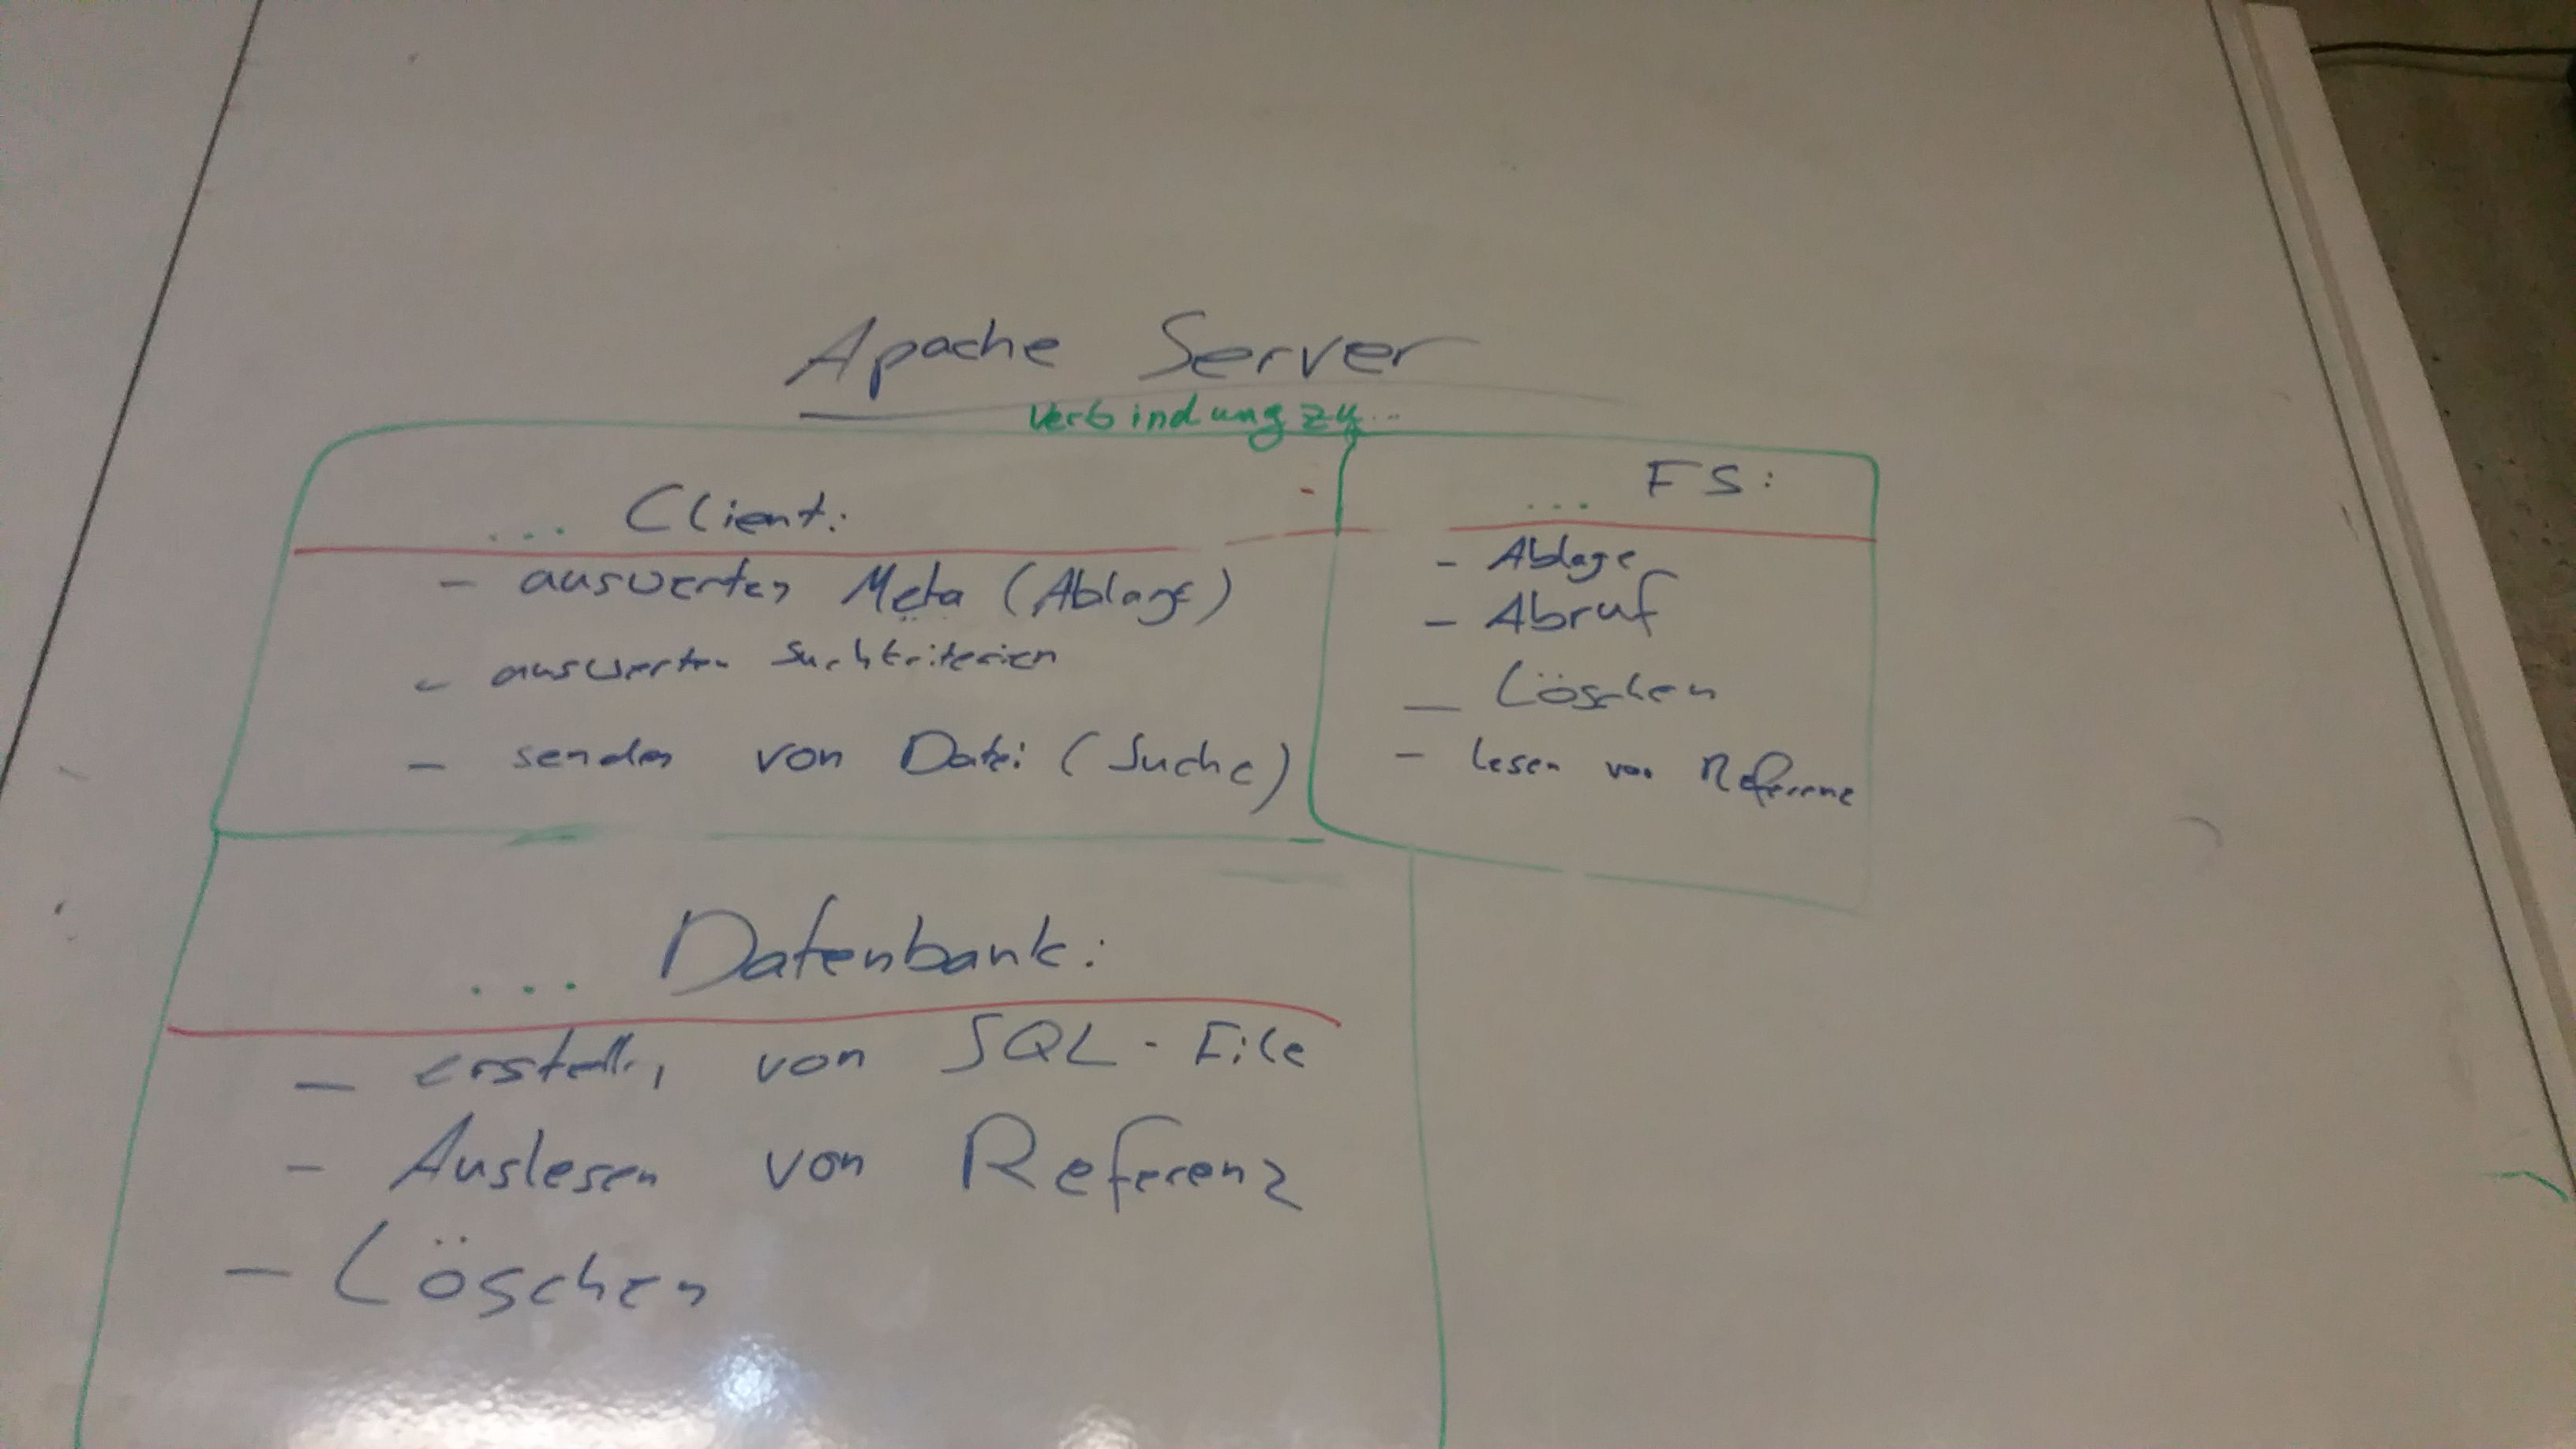 Apache Server
Verbindung zu...
... Client:
- auswerten Meta (Ablage)
- auswerten Suchkriterien
- senden von Datei (Suche)
... FS:
- Ablage
- Abruf
- Löschen
- lesen von Referenz
... Datenbank:
- erstellen von SQL-File
- Auslesen von Referenz
- Löschen